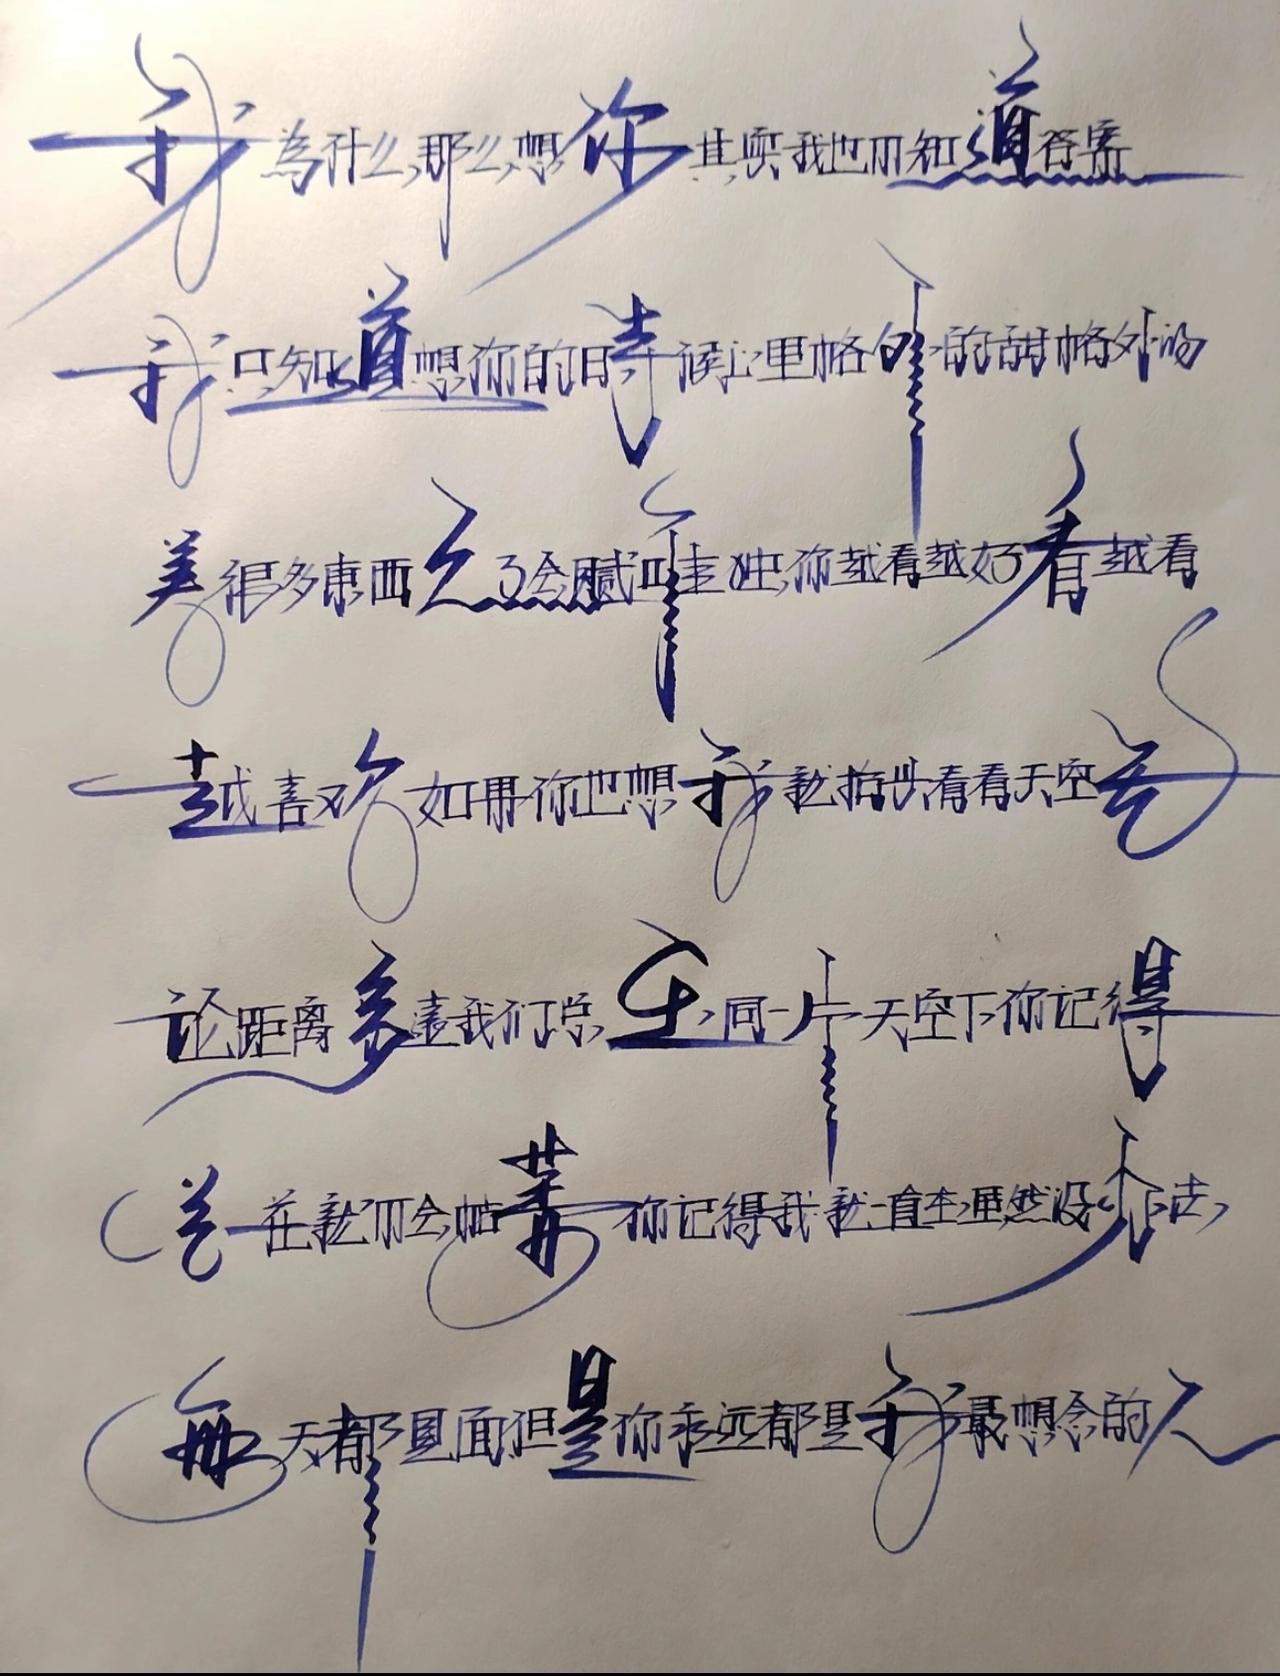 我為什么那么想你其实我也不知道答案
我只知道想你的时候心里格外的甜格外的
美很多东西久了会腻可唯独你越看越好看越看
越喜欢如果你也想我就抬头看看天空无
论距离多遠我们总在同一片天空下你记得
总在就不会寂寞你记得我就一直在虽然没办法
每天都见面但是你永远都是我最想念的人